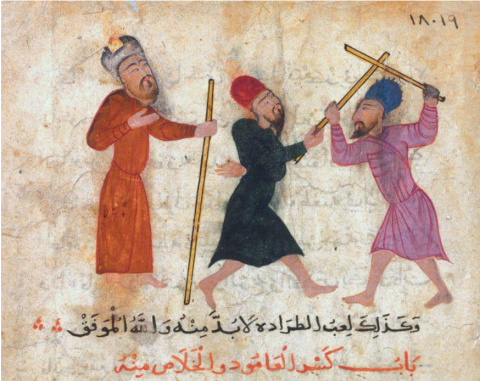 ١٨٠١٩
وَكَذَلِكَ لعبُ الطراده لَا بُدَّ مِنهُ وَاللهُ الْمُوَفِّقْ
بَابُ كَسْرِ الْعَامُودِ وَالْخَلَاصِ مِنْهُ